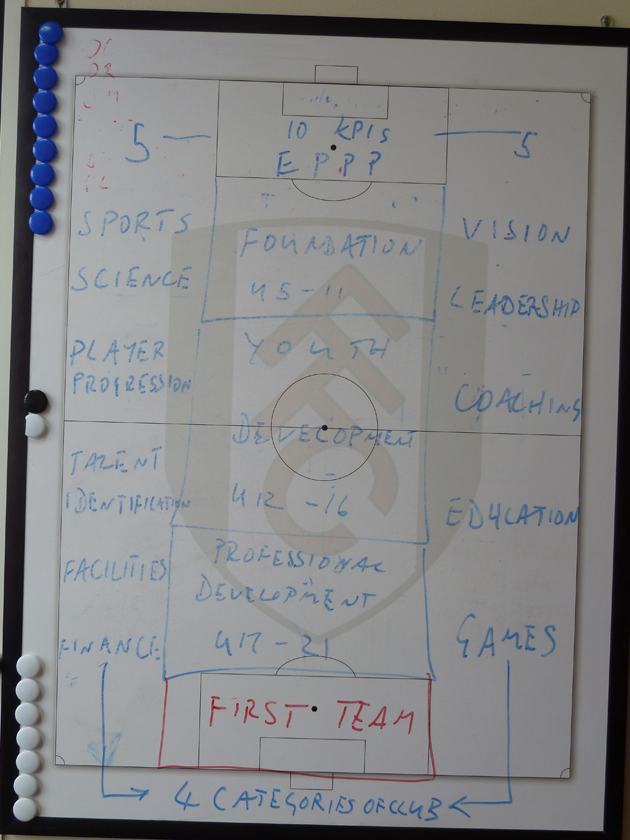 10 KPIs
5
5
EPPP
SPORTS
SCIENCE
PLAYER
PROGRESSION
TALENT
IDENTIFICATION
FACILITIES
FINANCE
FOUNDATION
U5-11
YOUTH
DEVELOPMENT
U12-16
PROFESSIONAL
DEVELOPMENT
U17-21
FIRST TEAM
VISION
LEADERSHIP
COACHING
EDUCATION
GAMES
4 CATEGORIES OF CLUB